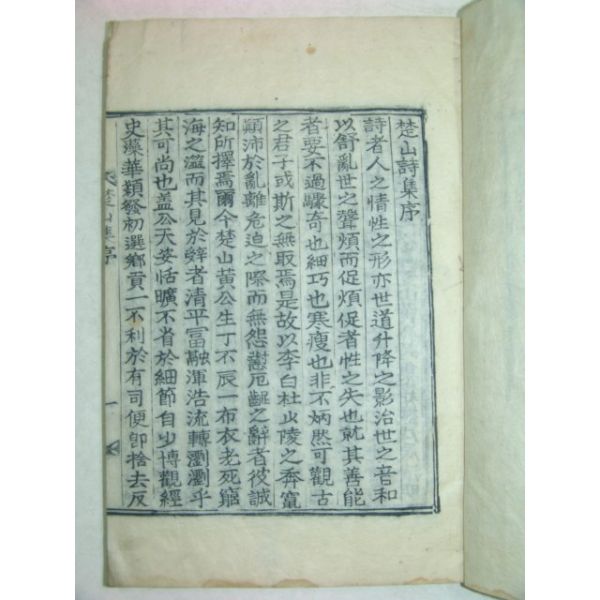 楚山詩集序
詩者人之情性之形亦世道升降之影治世之音和
以舒亂世之聲煩而促煩促者性之失也就其善能
者要不過驟奇也細巧也寒瘦也非不炳然可觀古
之君子或斯之無取焉是故以李白杜少陵之奔竄
顚沛於亂離危迫之際而無怨懟厄齪之辭者彼誠
知所擇焉爾今楚山黃公生丁不辰一布衣老死窮
海之濫而其見於辭者清平富融渾浩流轉瀏瀏乎
其可尚也盖公天姿恬曠不省於細節自少博觀經
史藻華穎發初選鄉貢一不利於有司便卽捨去反
楚山集序
一